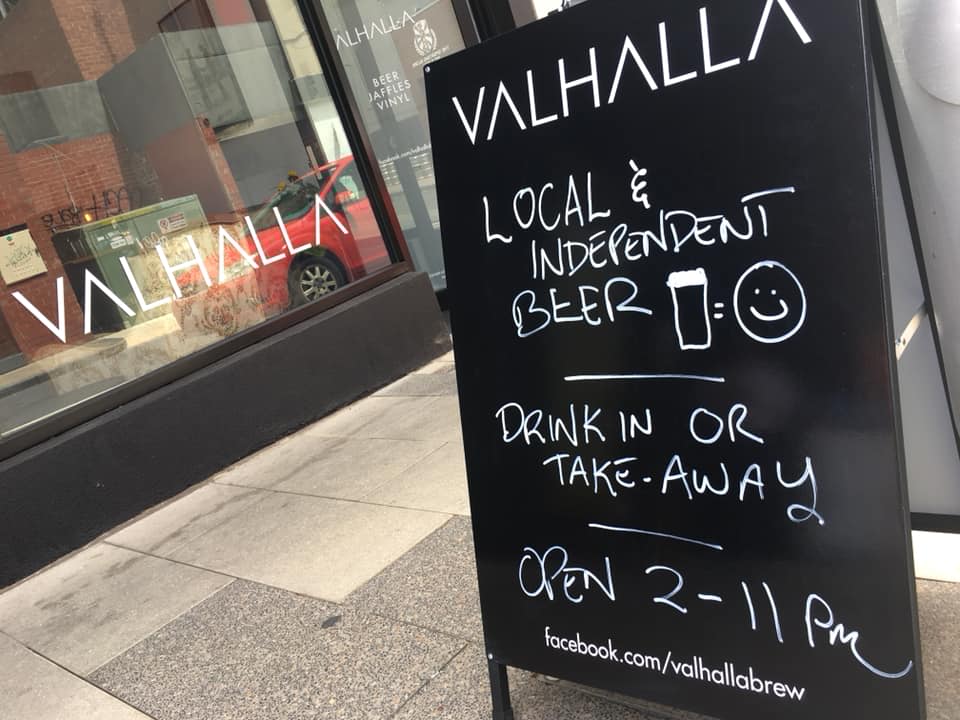 VALHALLA
BEER
JAFFLES
VINYL
VALHALLA
VALHALLA
LOCAL &
INDEPENDENT
BEER =
DRINK IN OR
TAKE-AWAY
OPEN 2-11 PM
facebook.com/valhallabrew